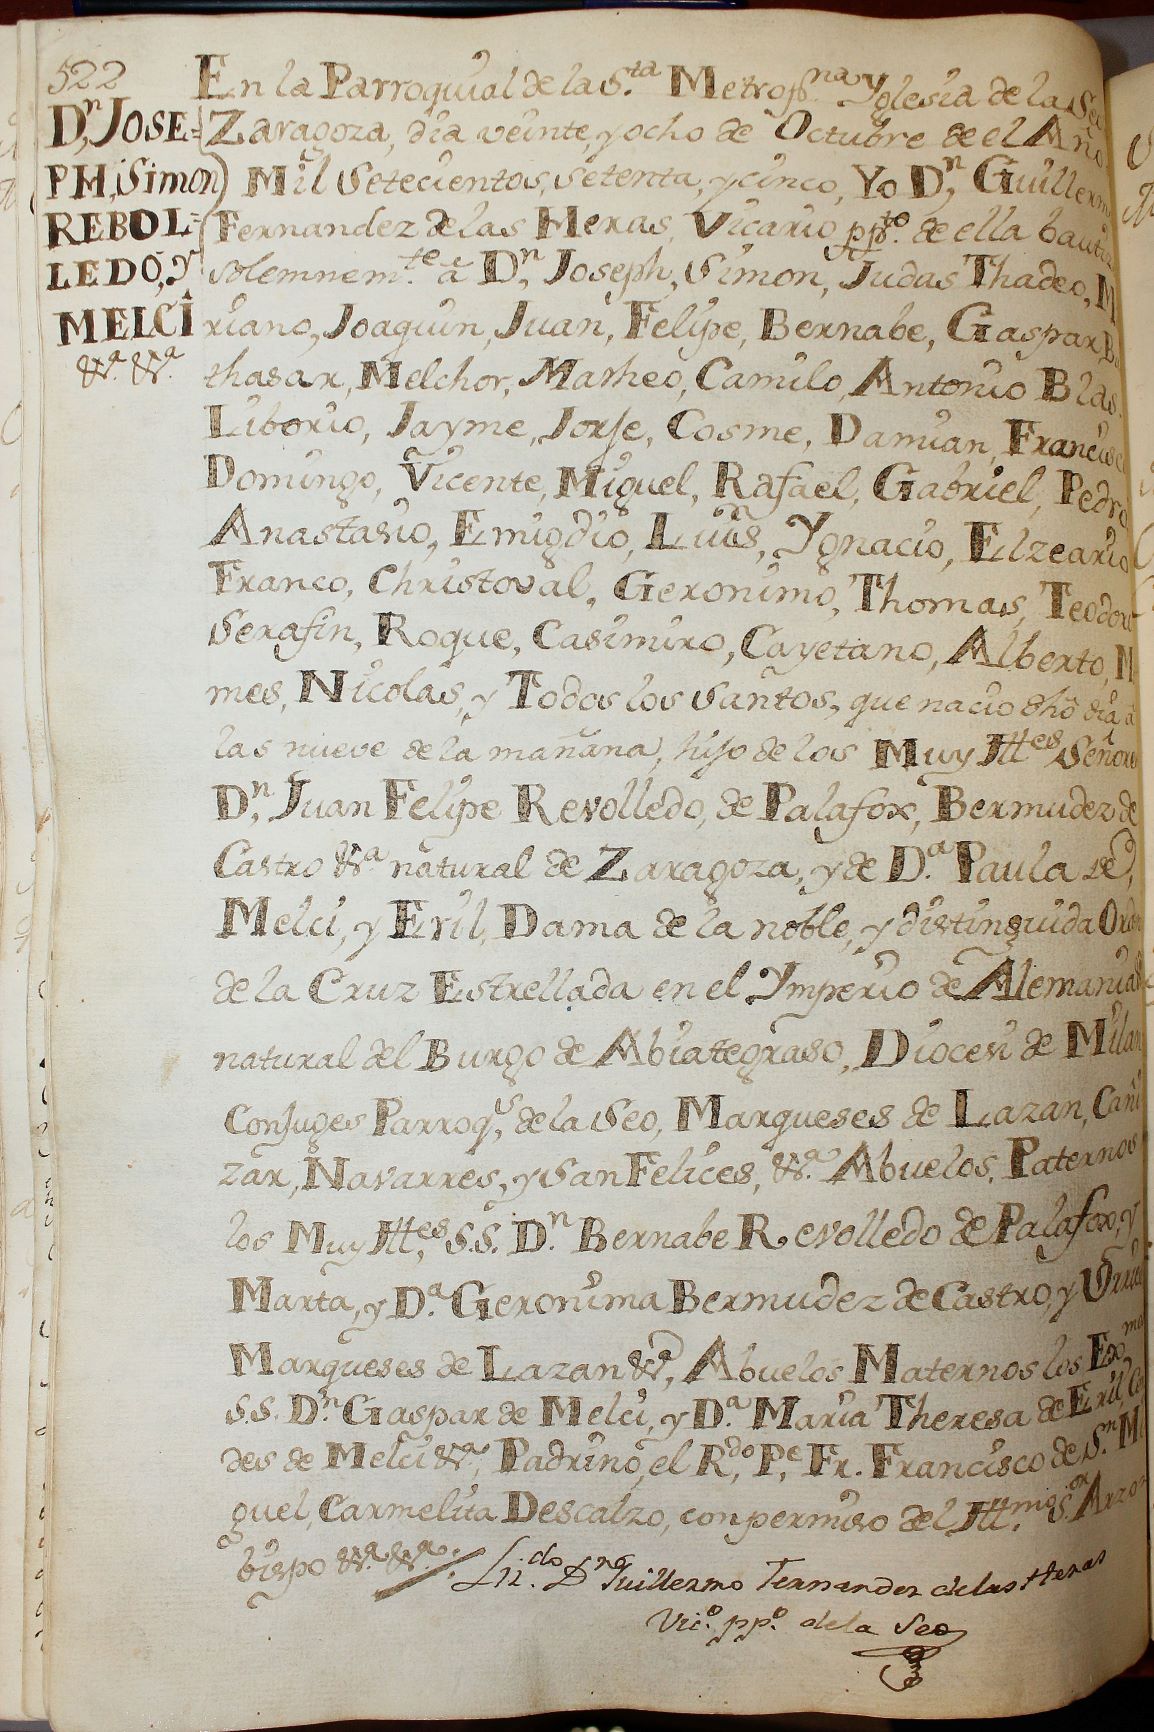 522
Dn. JOSE=
PH, Simon
REBOL=
LEDO, y
MELCI
&a. &a.
En la Parroquial de la Sta. Metropna. Yglesia de la Seo
Zaragoza, dia veinte, y ocho de Octubre de el Año
Mil Setecientos, setenta, y cinco, Yo Dn. Guillerm
Fernandez de las Heras, Vicario ppto. de ella bauti
solemnemte. â Dn. Joseph, Simon, Judas Thadeo, M
riano, Joaquin, Juan, Felipe, Bernabe, Gaspar, B
thasar, Melchor, Matheo, Camilo, Antonio Blas,
Liborio, Jayme, Jorje, Cosme, Damian, Francisc
Domingo, Vicente, Miguel, Rafael, Gabriel, Pedro
Anastasio, Emigdio, Luis, Ygnacio, Elzeario
Franco, Christoval, Geronimo, Thomas, Teodor
Serafin, Roque, Casimiro, Cayetano, Alberto, M
mes, Nicolas, y Todos los Santos, que nacio dho dia a
las nueve de la mañana, hijo de los Muy Illes Señores
Dn. Juan Felipe Revolledo, de Palafox, Bermudez de
Castro &a. natural de Zaragoza, y de Da. Paula de
Melci, y Eril, Dama de la noble, y distinguida Orden
de la Cruz Estrellada en el Ymperio de Alemania
natural del Burgo de Abiategraso, Diocesi de Milan
Conjuges Parroqs. de la Seo, Marqueses de Lazan, Cañi
zar, Navarres, y San Felices, &a. Abuelos, Paternos
los Muy Illes. S.S. Dn. Bernabe Revolledo de Palafox, y
Marta, y Da. Geronima Bermudez de Castro, y
Marqueses de Lazan &a, Abuelos Maternos los Exmos
S.S. Dn. Gaspar de Melci, y Da. Maria Theresa de Eril, Con
des de Melci &a, Padrino, el Rdo. Pe. Fr. Francisco de Sn. Mi
guel, Carmelita Descalzo, con permiso del Illmo. Sor. Arzo=
bispo &a. &a.
Lizdo. Dn. Guillermo Fernandez de las Heras
Vico. ppo. de la Seo